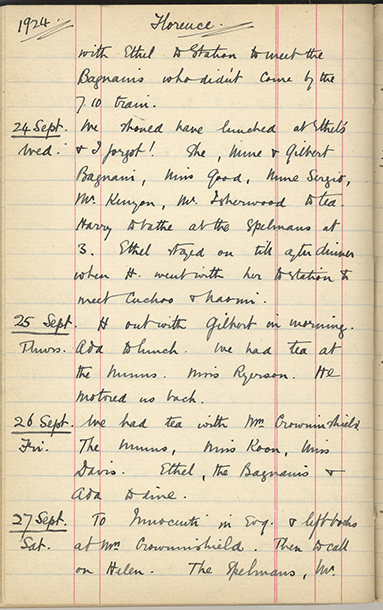 1924. Florence.
with Ethel to Station to meet the
Bagnanis who didn't come by the
7.10 train.
24 Sept. We should have lunched at Ethel's
Wed. & I forgot! She, Mme & Gilbert
Bagnani, Miss Good, Mme Sergio,
Mr. Kenyon, Mr. Isherwood to tea.
Harry to bathe at the Spelmans at
3. Ethel stayed on till after dinner
when H. went with her to station to
meet Cuchoo & Naomi.
25 Sept. H out with Gilbert in morning.
Thurs. Ada to lunch. We had tea at
the Munns. Miss Ryerson. He
motored us back.
26 Sept. We had tea with Mrs Crowninshield,
Fri. The Munns, Miss Koon, Miss
Davis. Ethel, the Bagnanis &
Ada to dine.
27 Sept. To Innocenti in Evg. & left books
Sat. at Mrs Crowninshield. Then to call
on Helen. The Spelmans, Mr.